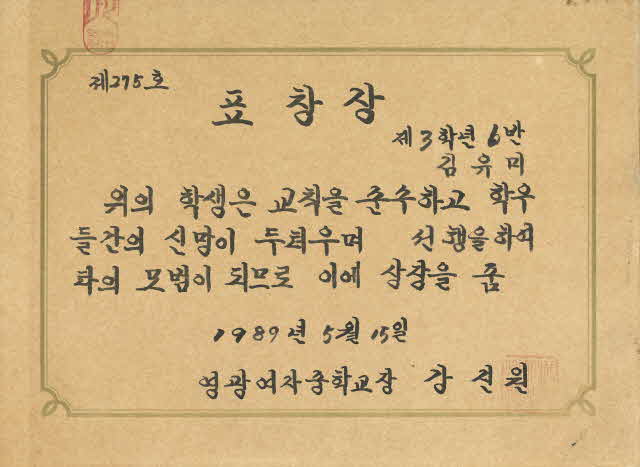 제275호
표창장
제3학년 6반
김유미
위의 학생은 교칙을 준수하고 학우
들간의 신망이 두터우며 선행을하여
타의 모범이 되므로 이에 상장을 줌
1989년 5월 15일
영광여자중학교장 강선원